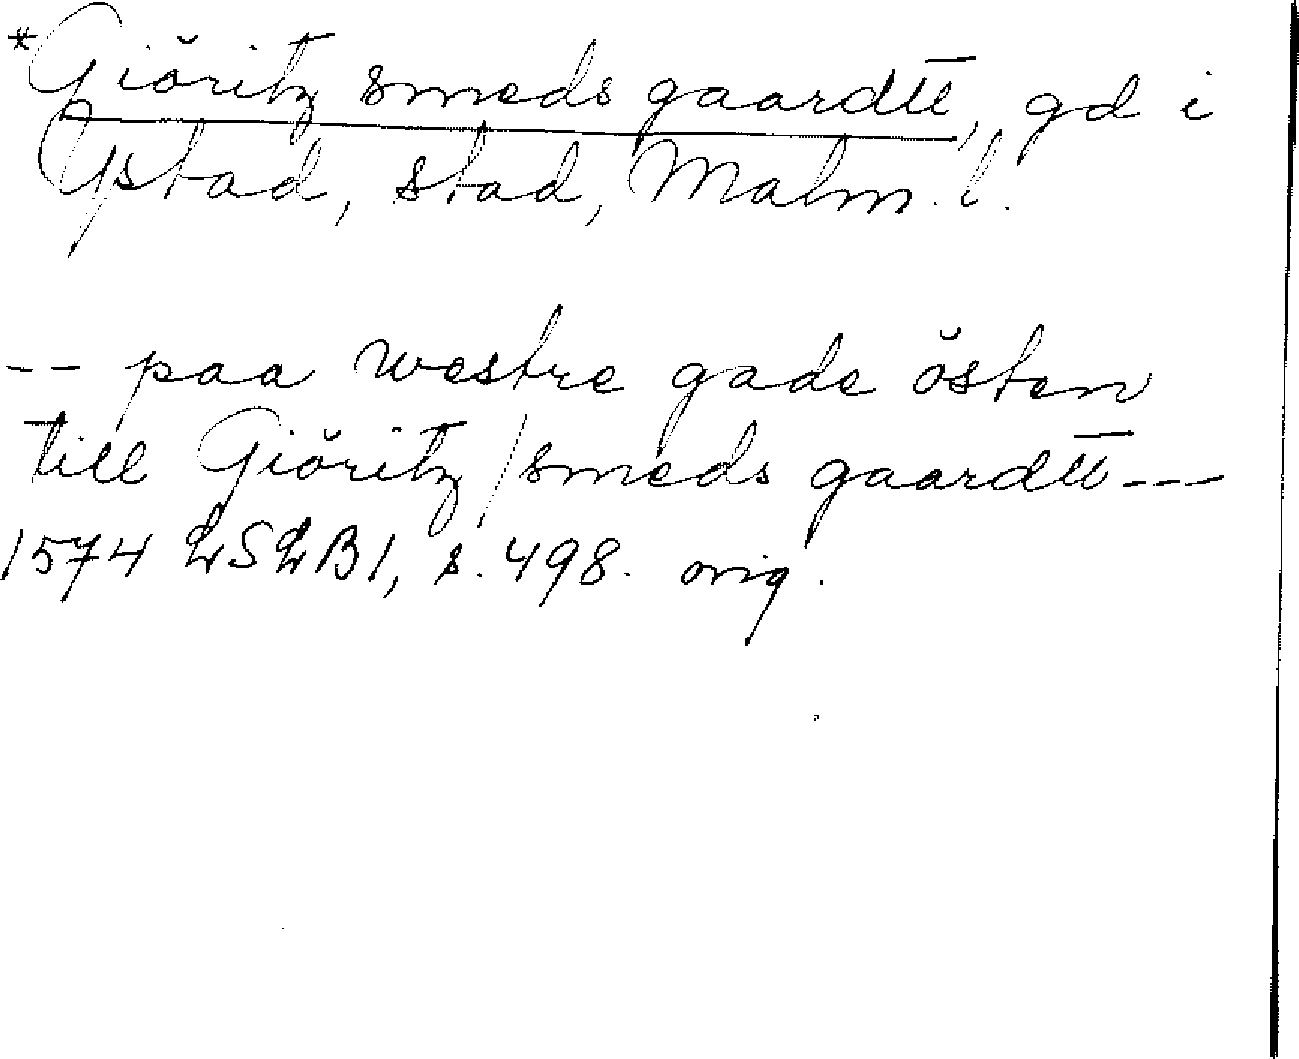 *Giŏritz smeds gaardtt, gd i
Ystad, stad, Malm. l.
-- paa westre gade ŏsten
till Giŏritz / smeds gaardtt ---
1574 LSLB1, s. 498. orig.